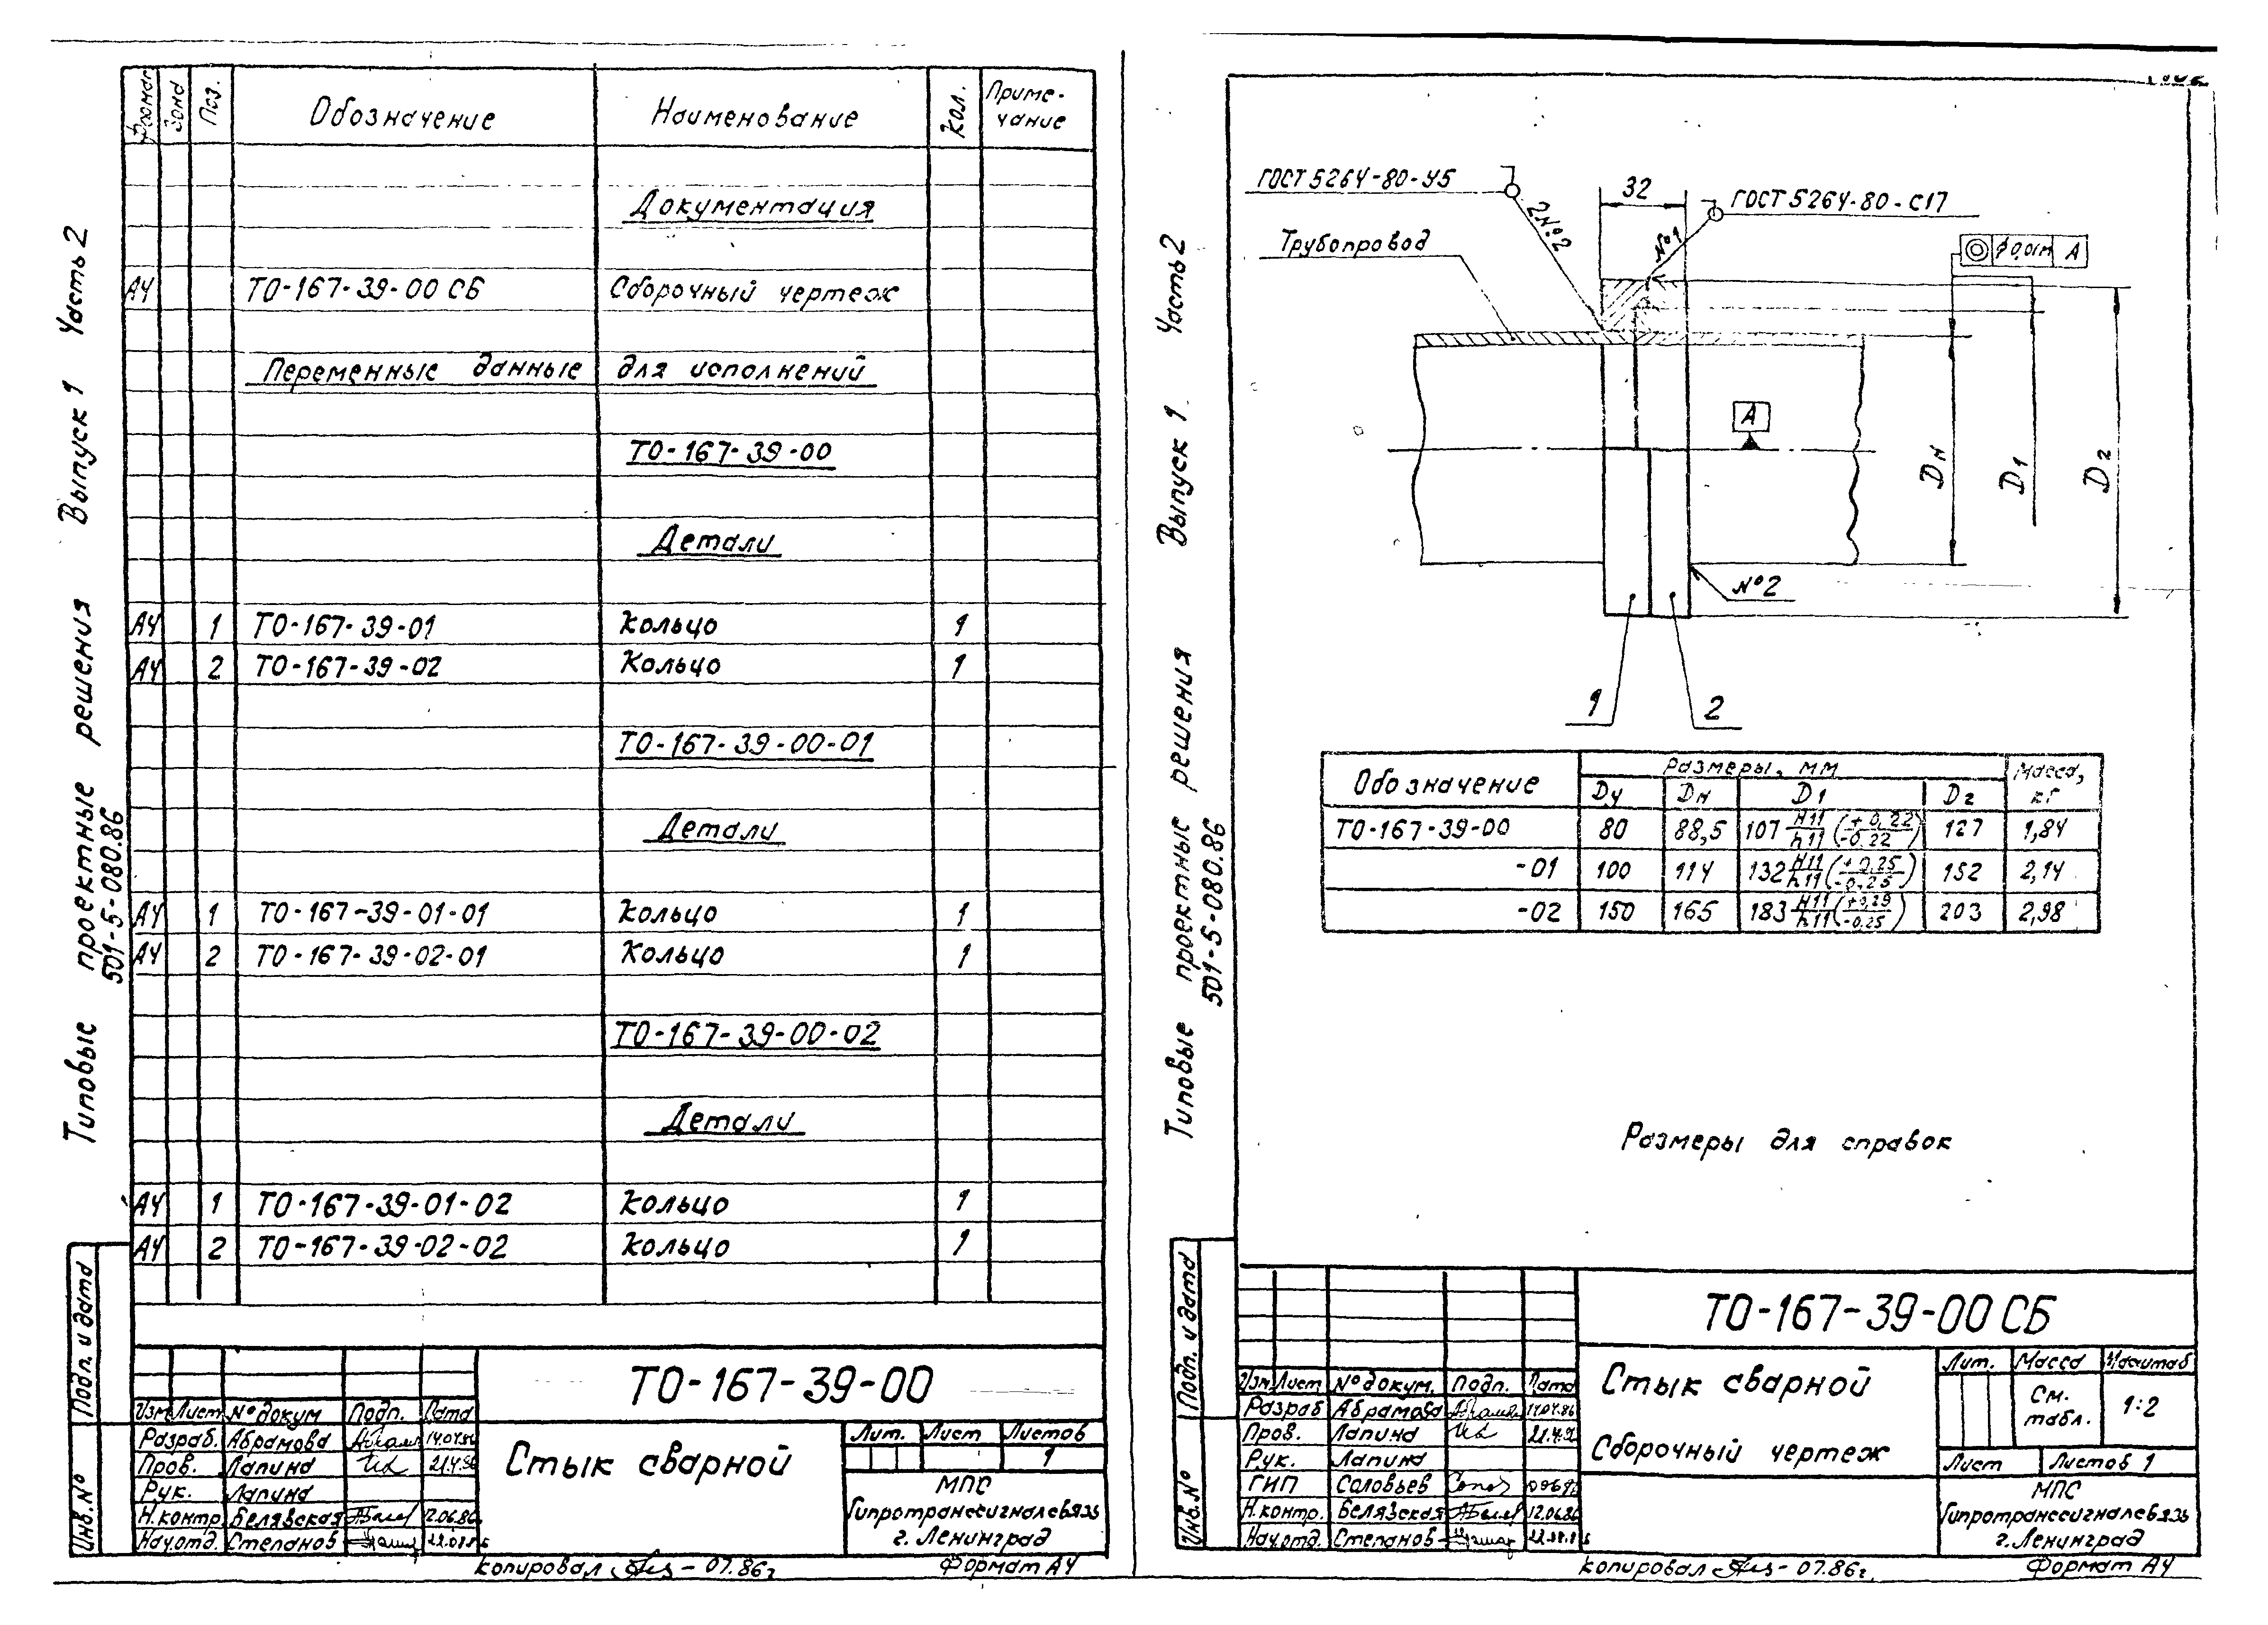 Типовые проектные решения Выпуск 1 Часть 2
501-5-080.86
Формат Зона Поз. Обозначение Наименование Кол. Приме-
чание
Документация
А4 ТО-167-39-00 СБ Сборочный чертеж
Переменные данные для исполнений
ТО-167-39-00
Детали
А4 1 ТО-167-39-01 Кольцо 1
А4 2 ТО-167-39-02 Кольцо 1
ТО-167-39-00-01
Детали
А4 1 ТО-167-39-01-01 Кольцо 1
А4 2 ТО-167-39-02-01 Кольцо 1
ТО-167-39-00-02
Детали
А4 1 ТО-167-39-01-02 Кольцо 1
А4 2 ТО-167-39-02-02 Кольцо 1
Подп. и дата
Инв. №
ТО-167-39-00
Изм Лист № докум Подп. Дата
Разраб. Абрамова 14.04.86
Пров. Лапина 21.4.86
Рук. Лапина
Н.контр. Белявская 12.06.86
Нач.отд. Степанов
Стык сварной
Лит. Лист Листов
1
МПС
Гипротранссигналсвязь
г. Ленинград
Копировал - 07.86г Формат А4
Типовые проектные решения Выпуск 1 Часть 2
501-5-080.86
ГОСТ 5264-80-У5
2 №2
32
ГОСТ 5264-80-С17
№1
Трубопровод
А
А
Dн
D1
D2
№2
1 2
Обозначение Размеры, мм Масса,
кг
Dу Dн D1 D2
ТО-167-39-00 80 88,5 107 H11/h11 (+0,22/-0,22) 127 1,84
-01 100 114 132 H11/h11 (+0,25/-0,25) 152 2,14
-02 150 165 183 H11/h11 (+0,29/-0,25) 203 2,98
Размеры для справок
Подп. и дата
Инв. №
ТО-167-39-00 СБ
Изм Лист № докум. Подп. Дата
Разраб Абрамова 14.04.86
Пров. Лапина
Рук. Лапина
ГИП Соловьев
Н.контр. Белявская 12.06.86
Нач.отд. Степанов
Стык сварной
Сборочный чертеж
Лит. Масса Масштаб
См.
табл. 1:2
Лист Листов 1
МПС
Гипротранссигналсвязь
г. Ленинград
Копировал - 07.86г. Формат А4